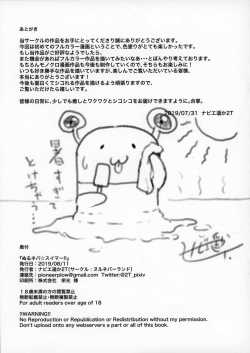 あとがき
当サークルの作品をお手にとってくださり誠にありがとうございます。
今回は初めてのフルカラー漫画ということで、色塗りがとても楽しかったです。
もし当作品がご好評なようでしたら、
また機会があればフルカラー作品を描いてみたいなあ…とぼんやり考えております。
もちろんモノクロ漫画作品も今後も制作していくので、そちらもお楽しみに！
いつも好き勝手な作品を描いていますが、楽しんでご覧いただいている皆様、
本当にありがとうございます！
今後も面白くてシコれる作品を描けるよう頑張りますので、
ご覧いただけたら嬉しいです。
皆様の日常に、少しでも癒しとワクワクとシコシコをお届けできますように。合掌。
2019/07/31 ナビエ遥か2T
暑すぎて
とけちゃう…
奥付
発行日：2019/08/11
発行者：ナビエ遥か2T(サークル：ヌルネバーランド)
連絡先：pioneerplow@gmail.com Twitter:@2T_pixiv
印刷所：株式会社 栄光 様
１８歳未満の方の閲覧禁止
無断転載禁止・無断複製禁止
For adult readers over age of 18
!!WARNING!!
No Reproduction or Republication or Redistribution without my permission.
Don't upload onto any webservers a part or all of this book.